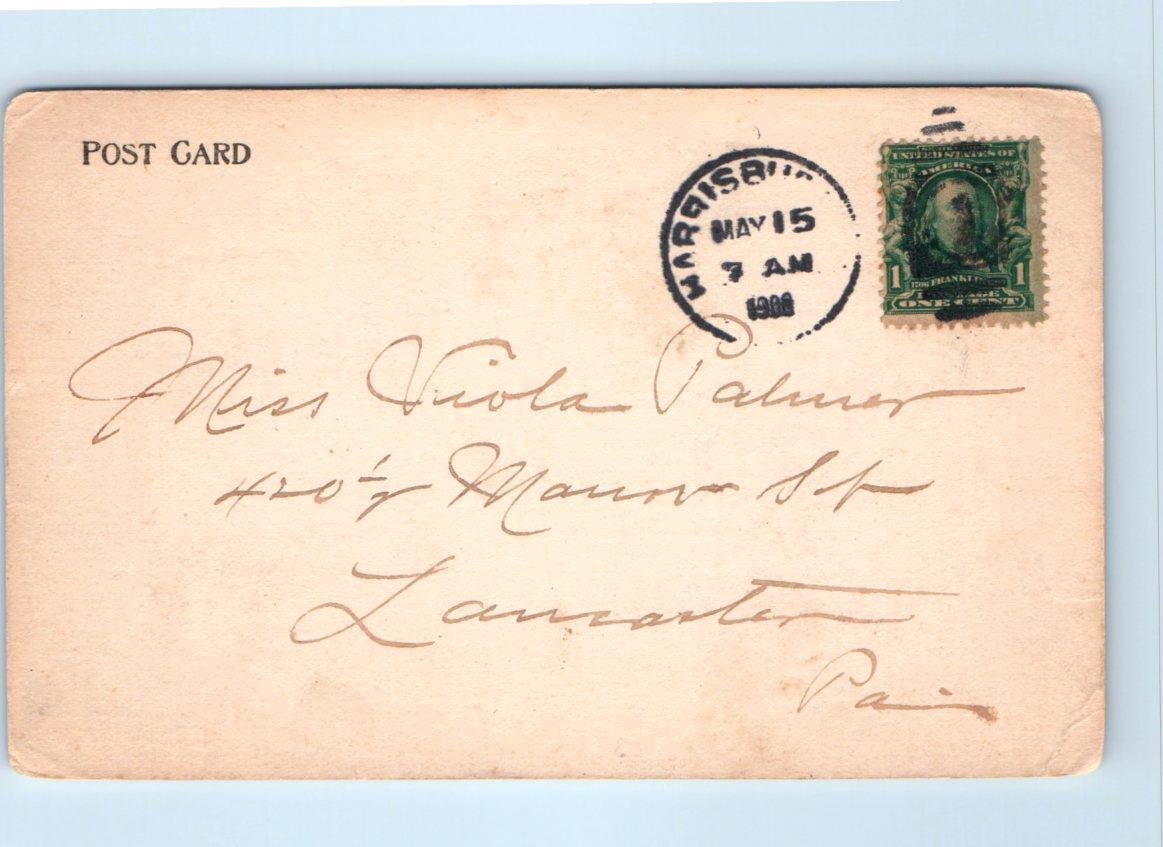 POST CARD
HARRISBU
MAY 15
7 AM
UNITED STATES OF
AMERICA
1 1
FRANKLIN
ONE CENT
Miss Viola Palmer
420½ Manor St
Lancaster
Pa.